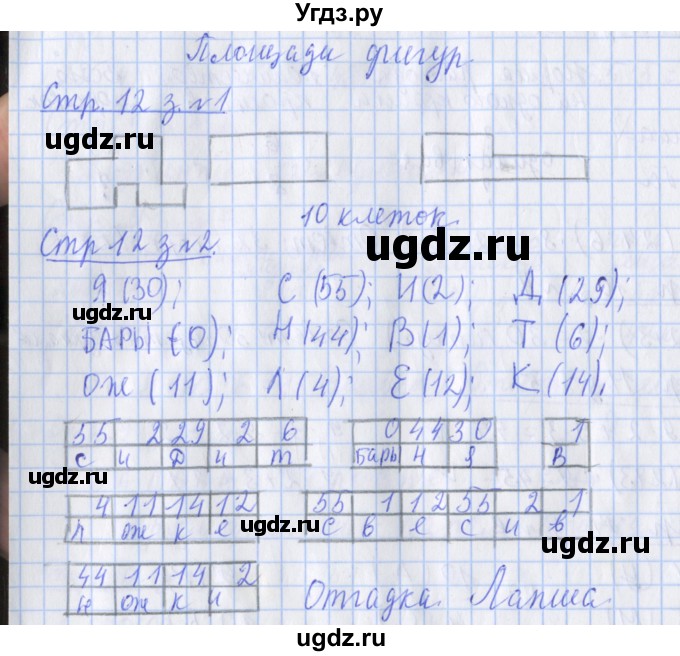 Угдз.ру
Площади фигур
Стр. 12 з. №1
ugdz.ru
ugdz.ru
10 клеток.
Стр 12 з №2.
ugdz.ru
ugdz.ru
Я (30); С (55); И(2); Д (29);
БАРЫ (0); Н (44); В(1); Т (6);
ОЖ (11); Л (4); Е (12); К (14).
55 2 29 2 6
с и д и т
0 44 30
Бары Н Я
1
В
4 11 14 12
л ож к е
55 1 12 55 2 1
с в е с и в
ugdz.ru
ugdz.ru
44 11 14 2
н ож к и
Отгадка. Лапша.
ugdz.ru
ugdz.ru